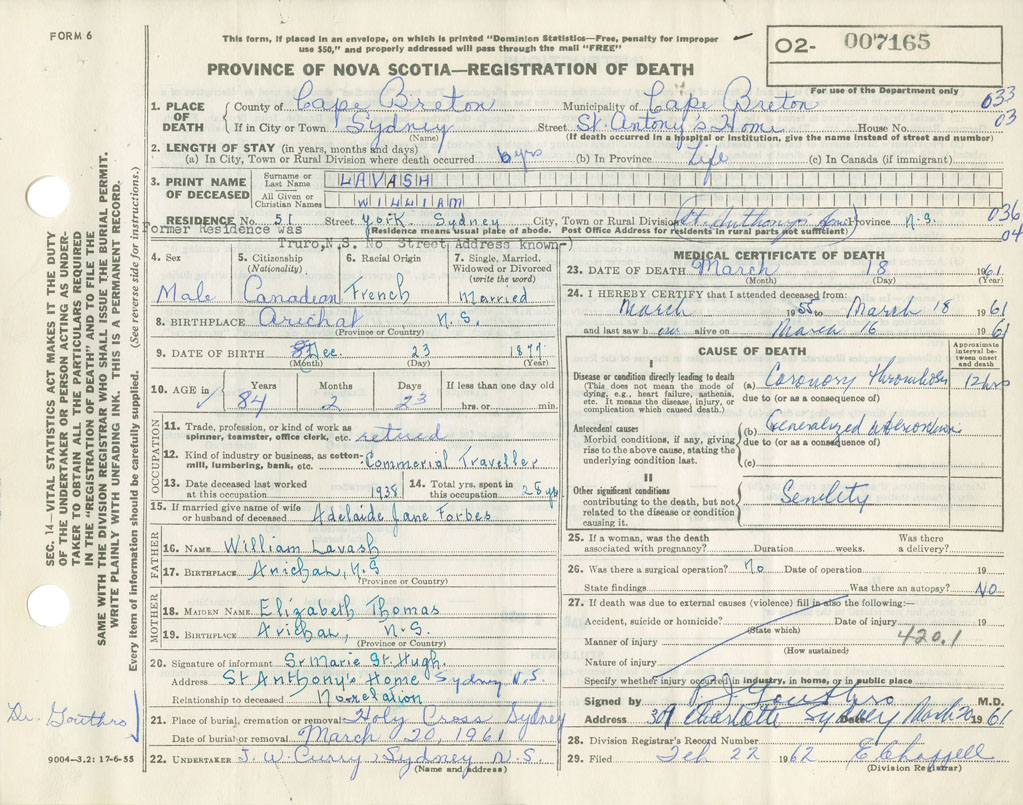 FORM 6
This form, if placed in an envelope, on which is printed "Dominion Statistics—Free, penalty for improper
use $50," and properly addressed will pass through the mail "FREE"
02- 007165
For use of the Department only
PROVINCE OF NOVA SCOTIA—REGISTRATION OF DEATH
1. PLACE OF DEATH County of Cape Breton Municipality of Cape Breton 033
If in City or Town Sydney Street St. Antony's Home House No. 03
(Name) (If death occurred in a hospital or institution, give the name instead of street and number)
2. LENGTH OF STAY (in years, months and days)
(a) In City, Town or Rural Division where death occurred 6 yrs (b) In Province Life (c) In Canada (if immigrant)
3. PRINT NAME OF DECEASED Surname or Last Name LAVASH
All Given or Christian Names WILLIAM
RESIDENCE No. 51 Street York Sydney City, Town or Rural Division (St. Anthonys Home) Province N.S. 036
(Residence means usual place of abode. Post Office Address for residents in rural parts not sufficient) 04
Former Residence was
Truro,N.S. No Street Address known-)
4. Sex Male
5. Citizenship (Nationality) Canadian
6. Racial Origin French
7. Single, Married, Widowed or Divorced (write the word) Married
8. BIRTHPLACE Arichat N.S.
(Province or Country)
9. DATE OF BIRTH Dec. 23 1877
(Month) (Day) (Year)
10. AGE in Years 84 Months 2 Days 23 If less than one day old hrs. or min.
OCCUPATION
11. Trade, profession, or kind of work as spinner, teamster, office clerk, etc. retired
12. Kind of industry or business, as cotton-mill, lumbering, bank, etc. Commerial Traveller
13. Date deceased last worked at this occupation 1938 14. Total yrs. spent in this occupation 28 yrs
15. If married give name of wife or husband of deceased Adelaide Jane Forbes
FATHER
16. NAME William Lavash
17. BIRTHPLACE Arichat, N.S
(Province or Country)
MOTHER
18. MAIDEN NAME Elizabeth Thomas
19. BIRTHPLACE Arichat, N.S.
(Province or Country)
20. Signature of informant Sr. Marie St. Hugh.
Address St Anthony's Home Sydney N.S.
Relationship to deceased No relation
21. Place of burial, cremation or removal Holy Cross Sydney
Date of burial or removal March 20, 1961
22. UNDERTAKER J. W. Curry, Sydney N.S.
(Name and address)
MEDICAL CERTIFICATE OF DEATH
23. DATE OF DEATH March 18 1961
(Month) (Day) (Year)
24. I HEREBY CERTIFY that I attended deceased from:
March 1955 to March 18 1961
and last saw h alive on March 16 1961
CAUSE OF DEATH
Approximate interval between onset and death
I
Disease or condition directly leading to death (a) Coronary thrombosis 12 hrs
(This does not mean the mode of dying, e.g., heart failure, asthenia, etc. It means the disease, injury, or complication which caused death.)
due to (or as a consequence of)
Antecedent causes (b) Generalized
Morbid conditions, if any, giving rise to the above cause, stating the underlying condition last.
due to (or as a consequence of)
(c)
II
Other significant conditions Senility
contributing to the death, but not related to the disease or condition causing it.
25. If a woman, was the death associated with pregnancy? Duration weeks. Was there a delivery?
26. Was there a surgical operation? No Date of operation 19
State findings Was there an autopsy? No
27. If death was due to external causes (violence) fill in also the following:—
Accident, suicide or homicide? Date of injury 19
(State which)
Manner of injury 420.1
(How sustained)
Nature of injury
Specify whether injury occurred in industry, in home, or in public place
Signed by Gouthro M.D.
Address 307 Charlotte Sydney Date March 20 1961
28. Division Registrar's Record Number
29. Filed Feb 22 1962
(Division Registrar)
SEC. 14—VITAL STATISTICS ACT MAKES IT THE DUTY
OF THE UNDERTAKER OR PERSON ACTING AS UNDER-
TAKER TO OBTAIN ALL THE PARTICULARS REQUIRED
IN THE "REGISTRATION OF DEATH" AND TO FILE THE
SAME WITH THE DIVISION REGISTRAR WHO SHALL ISSUE THE BURIAL PERMIT.
WRITE PLAINLY WITH UNFADING INK. THIS IS A PERMANENT RECORD.
Every item of information should be carefully supplied. (See reverse side for instructions.)
Dr. Gouthro
9004—3.2: 17-6-55